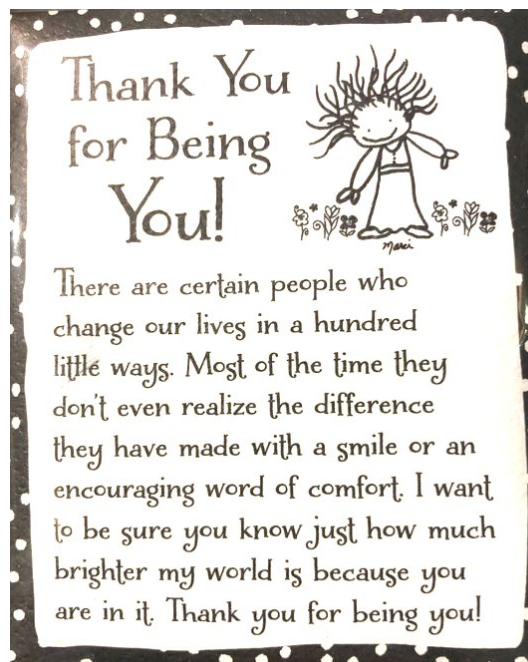 Thank You
for Being
You!
Marci
There are certain people who
change our lives in a hundred
little ways. Most of the time they
don't even realize the difference
they have made with a smile or an
encouraging word of comfort. I want
to be sure you know just how much
brighter my world is because you
are in it. Thank you for being you!